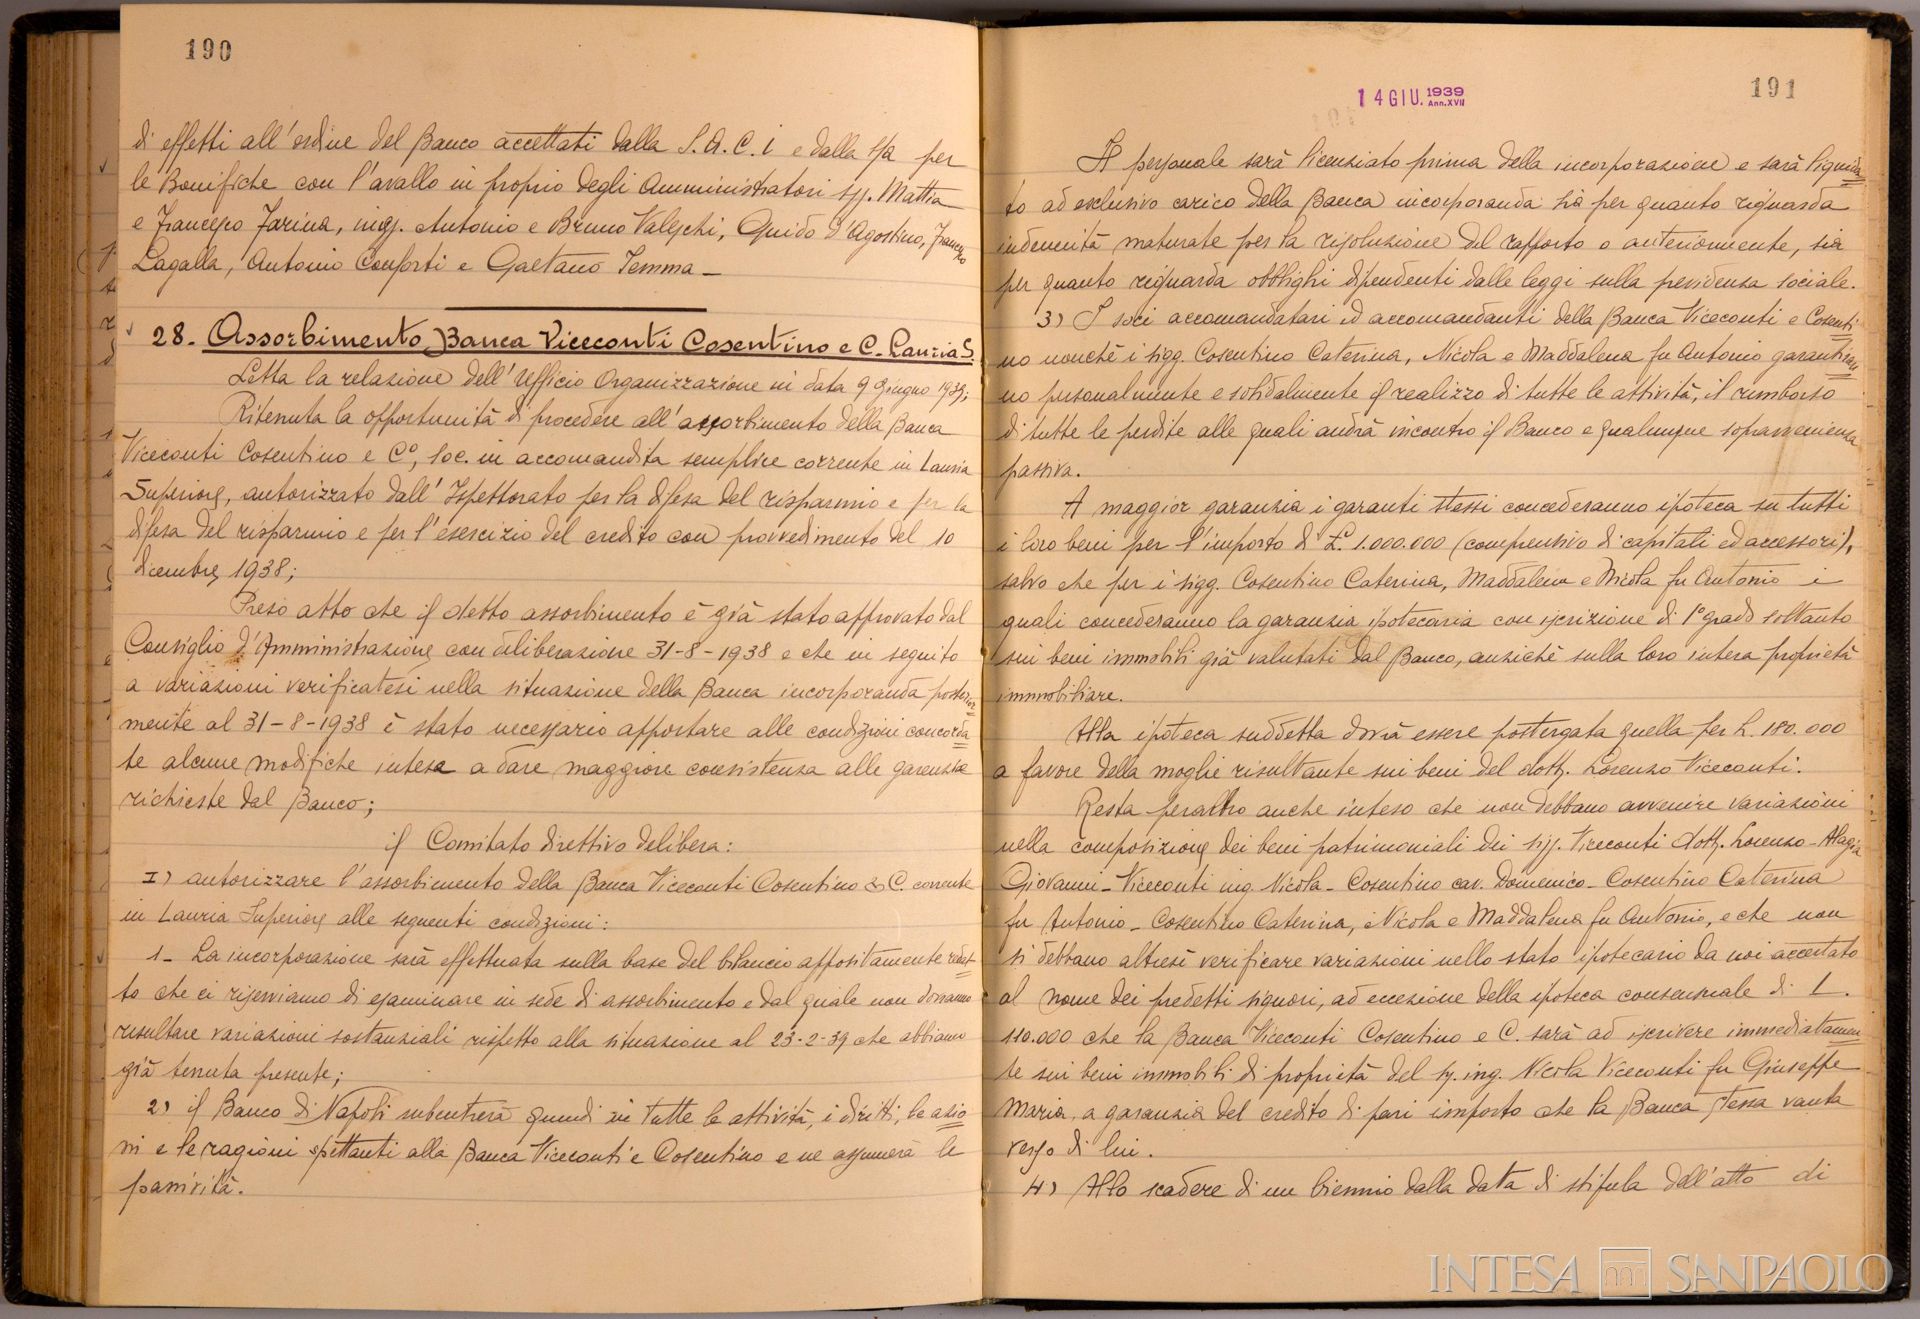 190
di effetti all'ordine del Banco accettati dalla S.A.C.I e dalla Spa per
le Bonifiche con l'avallo in proprio degli Amministratori sigg. Mattia
e Francesco Farina, ingg. Antonio e Bruno Valeschi, Guido d'Agostino, Francesco
Lagalla, Antonio Conforti e Gaetano Jemma_
28. Assorbimento Banca Viceconti Cosentino e C. Lauria S.
Letta la relazione dell'Ufficio Organizzazione in data 9 giugno 1939;
Ritenuta la opportunità di procedere all'assorbimento della Banca
Viceconti Cosentino e Cº, Soc. in accomandita semplice corrente in Lauria
Superiore, autorizzato dall'Ispettorato per la difesa del risparmio e per la
difesa del risparmio e per l'esercizio del credito con provvedimento del 10
dicembre 1938;
Preso atto che il detto assorbimento è già stato approvato dal
Consiglio d'Amministrazione con deliberazione 31-8-1938 e che in seguito
a variazioni verificatesi nella situazione della Banca incorporanda posterior
mente al 31-8-1938 è stato necessario apportare alle condizioni concorda
te alcune modifiche intese a dare maggiore consistenza alle garenzie
richieste dal Banco;
il Comitato direttivo delibera:
I) autorizzare l'assorbimento della Banca Viceconti Cosentino & C. corrente
in Lauria Superiore alle seguenti condizioni:
1_ La incorporazione sarà effettuata sulla base del bilancio appositamente redat
to che ci riserviamo di esaminare in sede di assorbimento e dal quale non dovranno
risultare variazioni sostanziali rispetto alla situazione al 23-2-39 che abbiamo
già tenuta presente;
2) il Banco di Napoli subentrerà quindi in tutte le attività, i diritti, le azio
ni e le ragioni spettanti alla Banca Viceconti e Cosentino e ne assumerà le
passività.
14 GIU. 1939
Ann. XVII
191
Il personale sarà licenziato prima della incorporazione e sarà liquida
to ad esclusivo carico della Banca incorporanda sia per quanto riguarda
indennità maturate per la risoluzione del rapporto o anteriormente, sia
per quanto riguarda obblighi dipendenti dalle leggi sulla previdenza sociale.
3) I soci accomandatari ed accomandanti della Banca Viceconti e Cosenti
no nonchè i sigg. Cosentino Caterina, Nicola e Maddalena fu Antonio garantiran
no personalmente e solidalmente il realizzo di tutte le attività, il rimborso
di tutte le perdite alle quali andrà incontro il Banco e qualunque sopravvenienza
passiva.
A maggior garanzia i garanti stessi concederanno ipoteca su tutti
i loro beni per l'importo di £. 1.000.000 (comprensivo di capitali ed accessori),
salvo che per i sigg. Cosentino Caterina, Maddalena e Nicola fu Antonio i
quali concederanno la garanzia ipotecaria con iscrizione di 1º grado soltanto
sui beni immobili già valutati dal Banco, anzichè sulla loro intera proprietà
immobiliare.
Alla ipoteca suddetta dovrà essere postergata quella per L. 180.000
a favore della moglie risultante sui beni del dott. Lorenzo Viceconti.
Resta peraltro anche inteso che non debbano avvenire variazioni
nella composizione dei beni patrimoniali dei sigg. Viceconti dott. Lorenzo - Alagia
Giovanni - Viceconti ing. Nicola - Cosentino cav. Domenico - Cosentino Caterina
fu Antonio - Cosentino Caterina, Nicola e Maddalena fu Antonio, e che non
si debbano altresì verificare variazioni nello stato ipotecario da noi accertato
al nome dei predetti signori, ad eccezione della ipoteca consensuale di L.
110.000 che la Banca Viceconti Cosentino e C. sarà ad iscrivere immediatamen
te sui beni immobili di proprietà del sig. ing. Nicola Viceconti fu Giuseppe
Maria, a garanzia del credito di pari importo che la Banca stessa vanta
verso di lui.
4) Allo scadere di un biennio dalla data di stipula dell'atto di
INTESA SANPAOLO